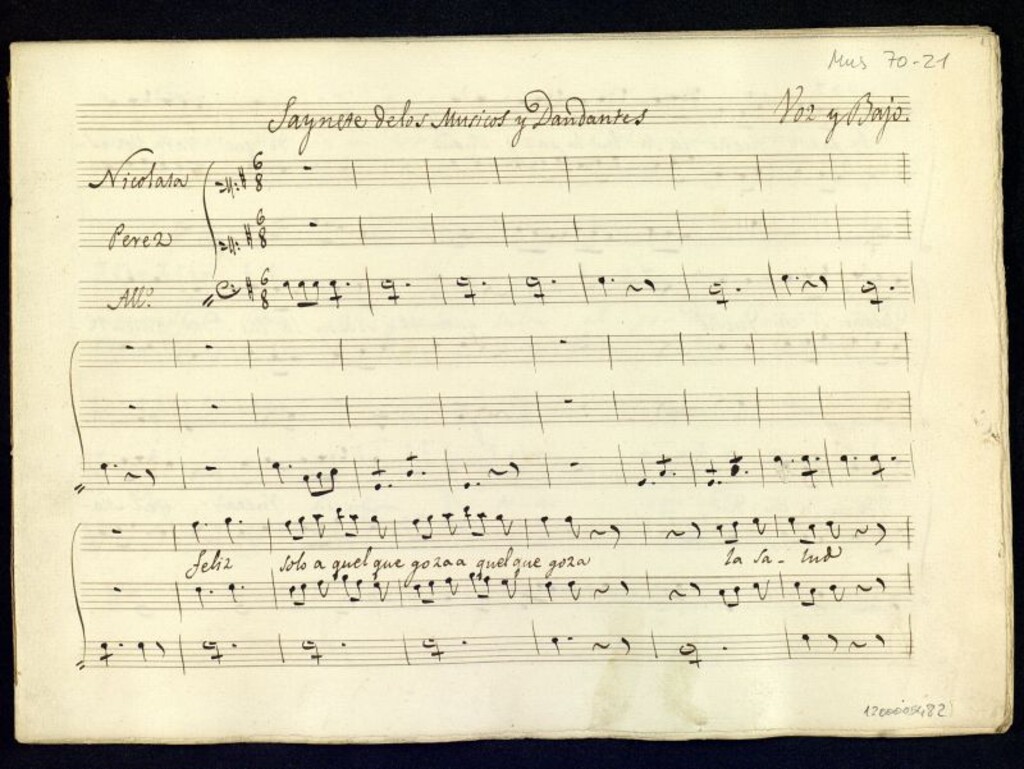 Mus 70-21
Saynete de los Musicos y Dandantes Voz y Bajo.
Nicolasa 6 8
Perez 6 8
All.º 6 8
feliz solo a quel que goza a quel que goza la sa- lud